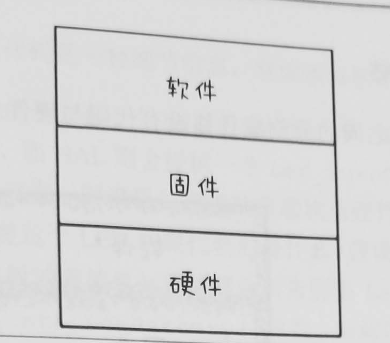 软件
固件
硬件